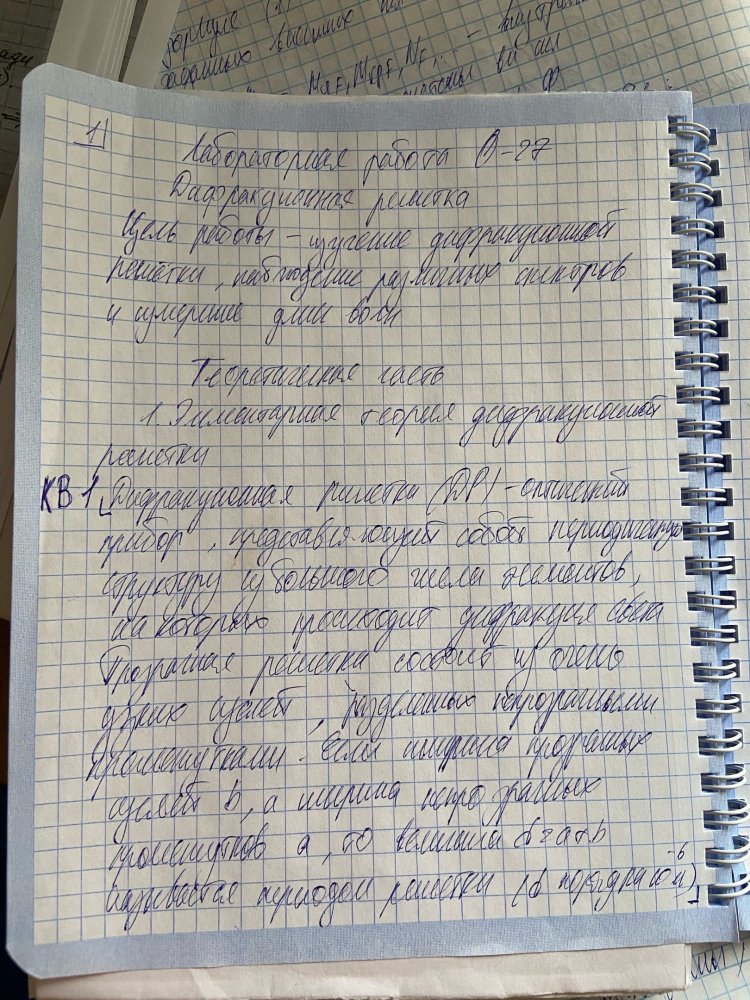 формуле (1)
заданных внешних
1)
Лабораторная работа О-27
Дифракционная решетка
Цель работы – изучение дифракционной
решётки, наблюдение различных спектров
и измерение длин волн
Теоретическая часть
1. Элементарная теория дифракционной
решетки
КВ 1 [Дифракционная решетка (ДР) – оптический
прибор, представляющий собой периодическую
структуру из большого числа элементов,
на которых происходит дифракция света
Прозрачная решетка состоит из очень
узких щелей, разделенных непрозрачными
промежутками. Если ширина прозрачных
щелей b, а ширина непрозрачных
промежутков a, то величина d=a+b
называется периодом решетки (d порядка 10⁻⁶ м)]